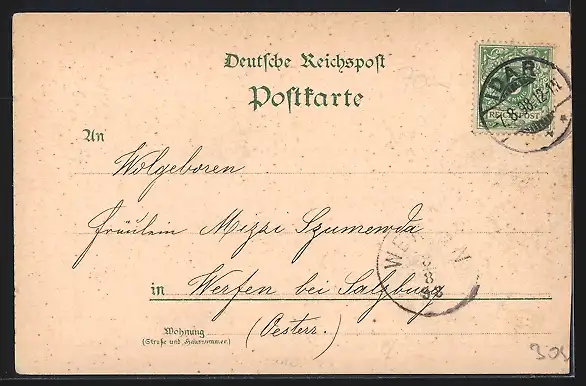 Deutsche Reichspost
Postkarte
IDAR
7.8.98. 12-1N
REICHSPOST
An
Wolgeboren
Fräulein Mizzi Szumewda
WERFEN
8
98
in Werfen bei Salzburg
Wohnung
(Straße und Hausnummer.)
(Oesterr.)
304